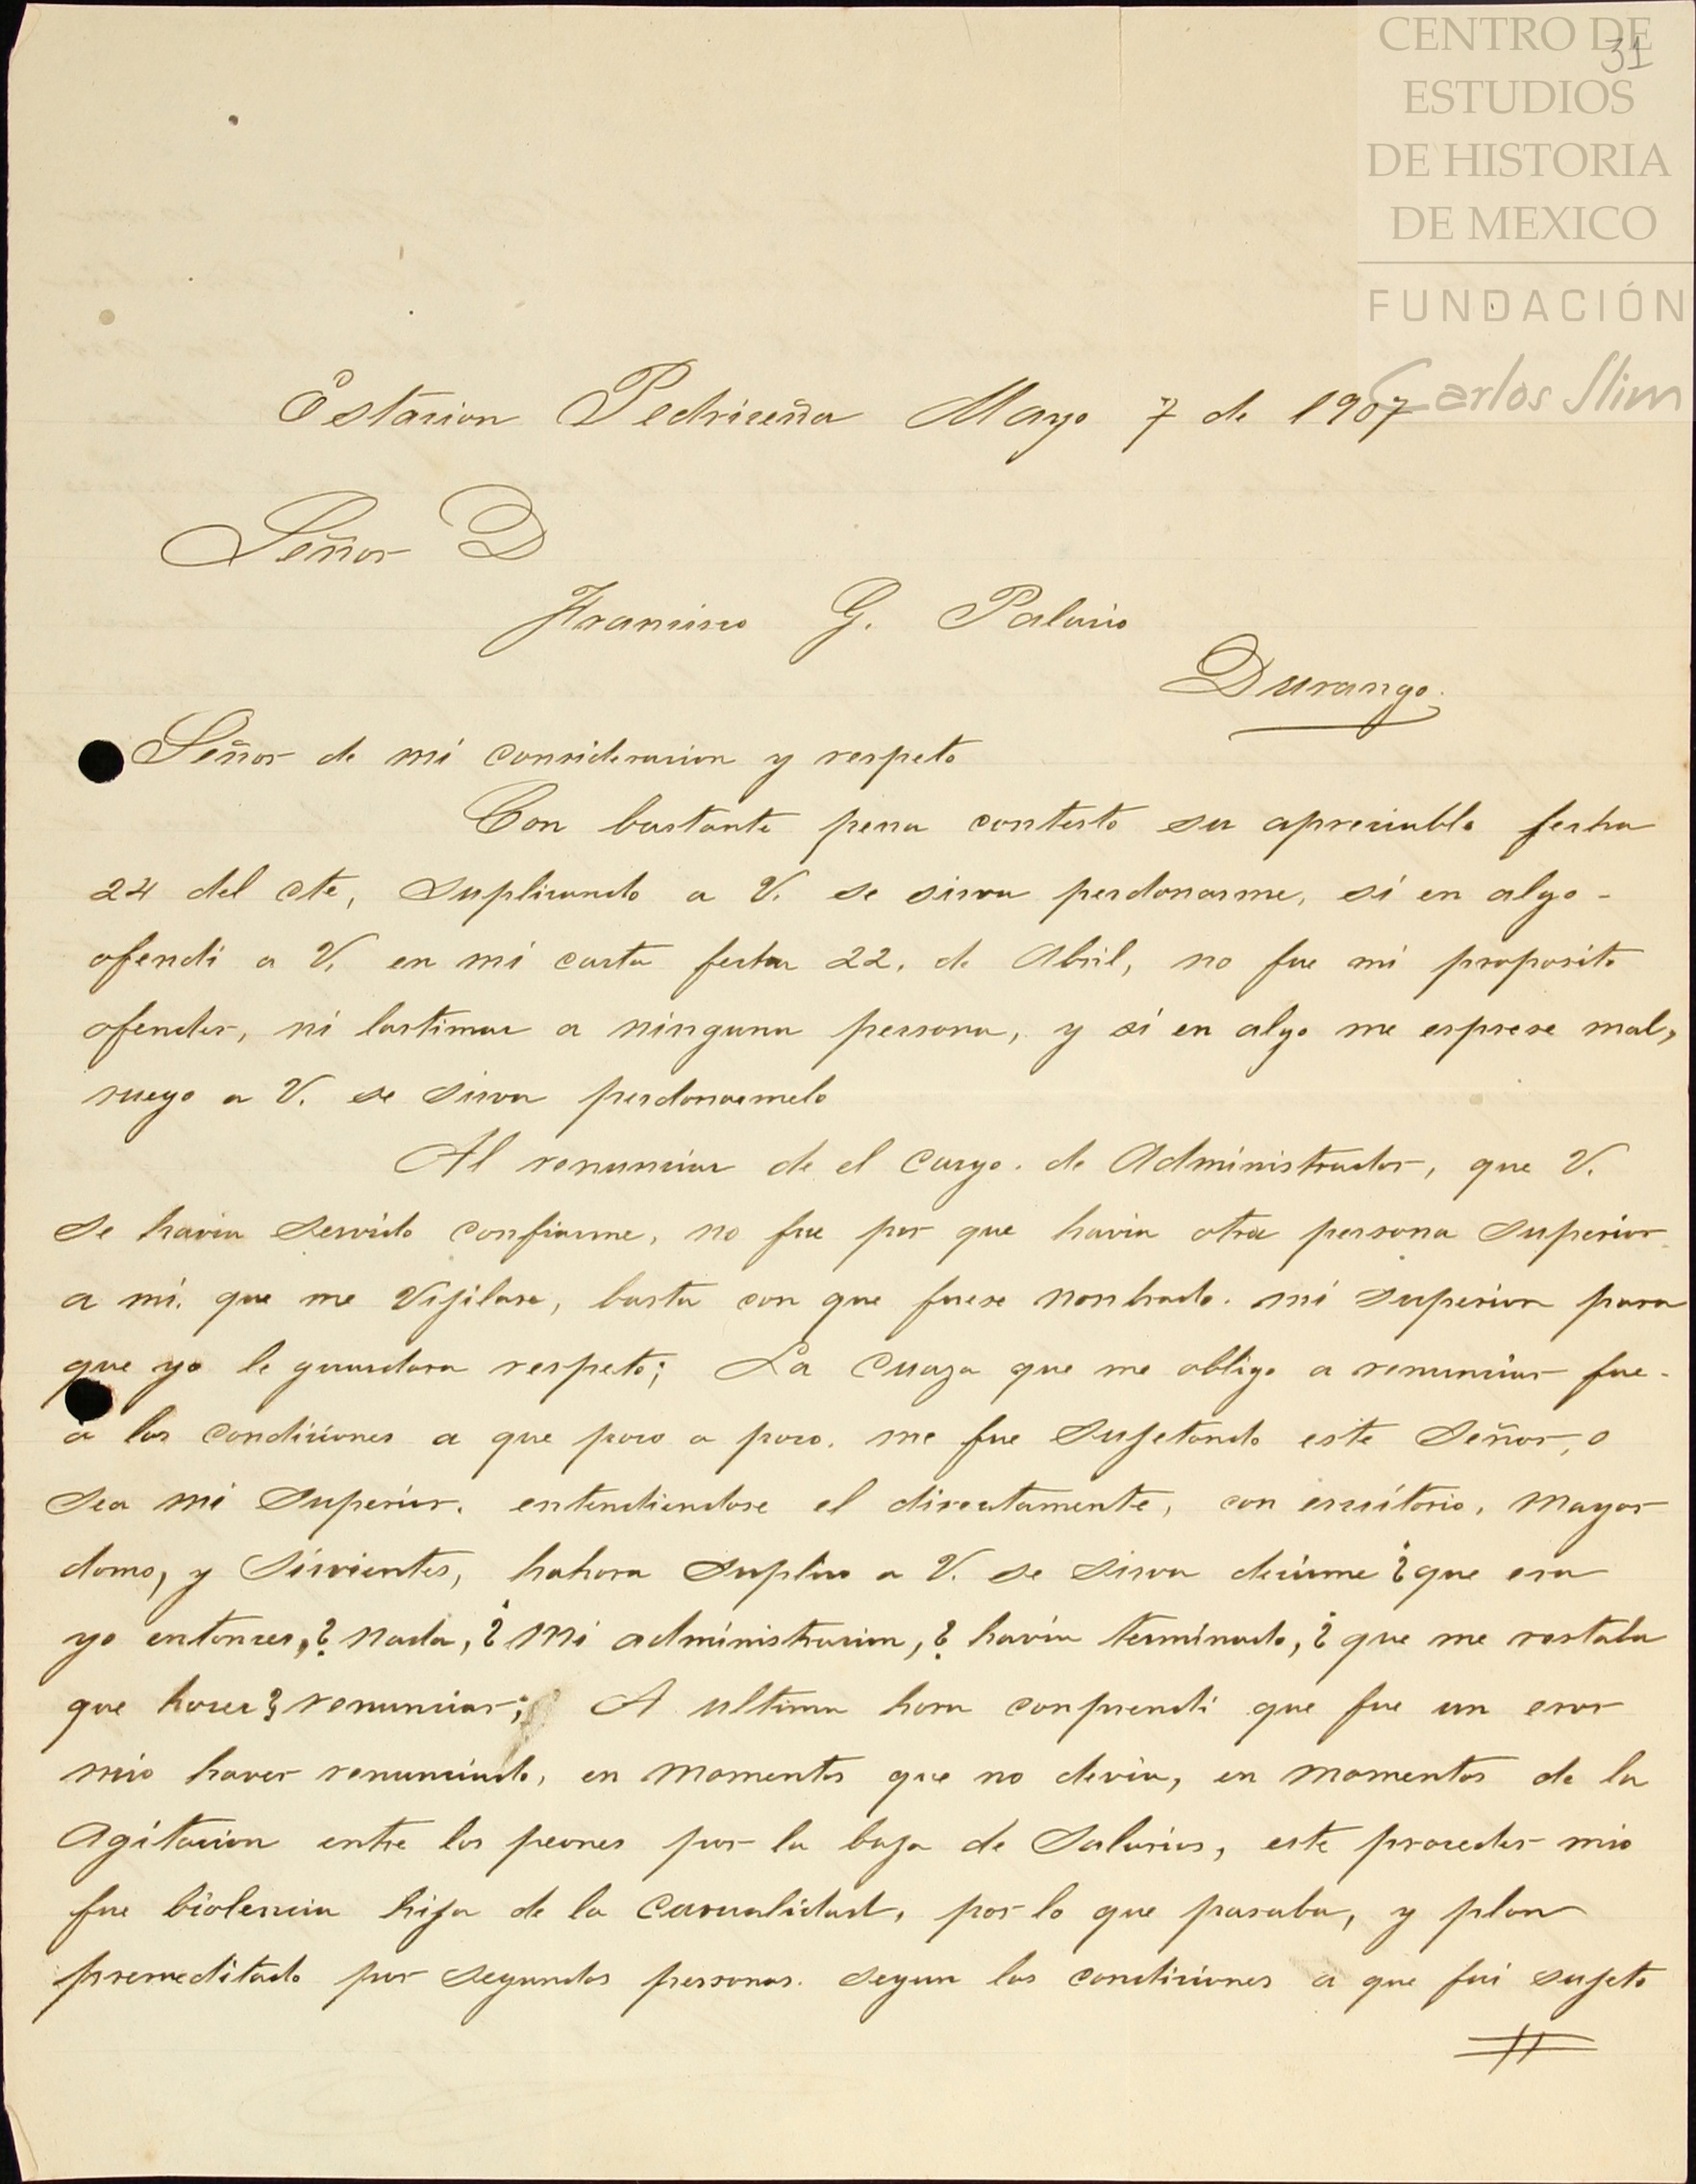 CENTRO DE
31
ESTUDIOS
DE HISTORIA
DE MEXICO
FUNDACIÓN
Carlos Slim
Estacion Pedriceña Mayo 7 de 1907
Señor D
Francisco G. Palacio
Durango.
Señor de mi consideracion y respeto
Con bastante pena contesto su apreciable fecha
24 del cte, suplicando a V. se sirva perdonarme, si en algo -
ofendi a V. en mi carta fecha 22. de Abril, no fue mi proposito
ofender, ni lastimar a ninguna persona, y si en algo me esprese mal,
ruego a V. se sirva perdonarmelo
Al renunciar de el cargo. de Administrador, que V.
se havia servido confiarme, no fue por que havia otra persona superior
a mi. que me Vijilase, basta con que fuese nonbrado. mi superior para
que yo le guardara respeto; La Cuaza que me obligo a renunciar fue -
a las condiciones a que poco a poco. me fue sujetando este Señor, o
sea mi superior. entendiendose el direcutamente, con escritorio, Mayor
domo, y Sirvientes, hahora suplico a V. se sirva decirme ¿que era
yo entonces,? Nada, ¿Mi administracion,? havia terminado, ¿que me restaba
que hacer? renunciar; A ultima hora conprendi que fue un eror
mio haver renunciado, en momentos que no devia, en momentos de la
Agitacion entre los peones por la baja de Salarios, este proceder mio
fue biolencia hija de la casualidad, por lo que pasaba, y plan
premeditado por segundas personas. segun las condiciones a que fui sujeto